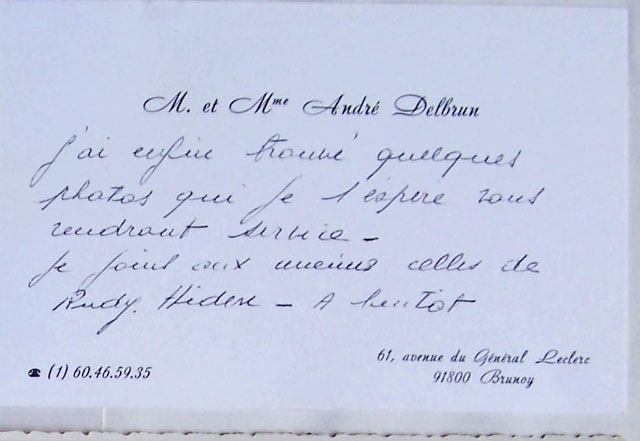 M. et Mme André Delbrun
j'ai enfin trouvé quelques
photos qui je l'espère vous
rendront service -
je joins aux miennes celles de
Rudy. Hiden - A bientôt
☎ (1) 60.46.59.35
61, avenue du Général Leclerc
91800 Brunoy